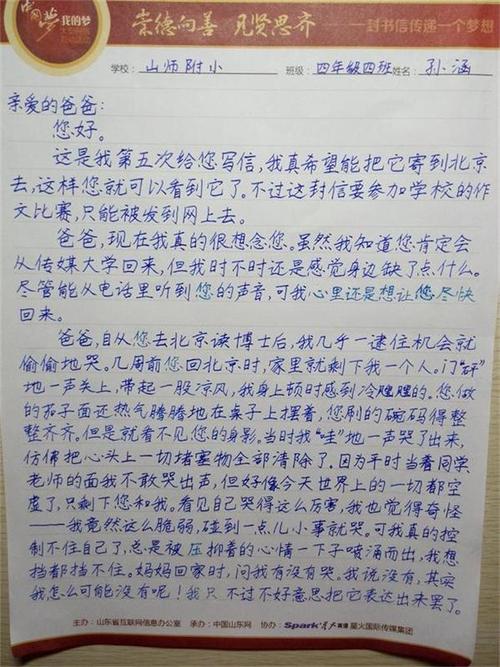 中国梦 我的梦
崇德向善 见贤思齐
一封书信传递一个梦想
学校: 山师附小 班级: 四年级四班 姓名: 孙涵
亲爱的爸爸:
您好。
这是我第五次给您写信,我真希望能把它寄到北京
去,这样您就可以看到它了。不过这封信要参加学校的作
文比赛,只能被发到网上去。
爸爸,现在我真的很想念您。虽然我知道您肯定会
从传媒大学回来,但我时不时还是感觉身边缺了点什么。
尽管能从电话里听到您的声音,可我心里还是想让您尽快
回来。
爸爸,自从您去北京读博士后,我几乎一逮住机会就
偷偷地哭。几周前您回北京时,家里就剩下我一个人。门“砰”
地一声关上,带起一股凉风,我身上顿时感到冷飕飕的。您做
的茄子面还热气腾腾地在桌子上摆着,您刷的碗码得整
整齐齐。但是就看不见您的身影。当时我“哇”地一声哭了出来,
仿佛把心头上一切堵塞物全部清除了。因为平时当着同学、
老师的面我不敢哭出声,但好像今天世界上的一切都空
虚了,只剩下您和我。看见自己哭得这么厉害,我也觉得奇怪
——我竟然这么脆弱,碰到一点儿小事就哭。可我真的控
制不住自己了,总是被压抑着的心情一下子喷涌而出,我想
挡都挡不住。妈妈回家时,问我有没有哭。我说没有,其实
我怎么可能没有呢!我只不过不好意思把它表达出来罢了。
主办:山东省互联网信息办公室 承办:中国山东网 协办:Spark 星火英语 星火国际传媒集团